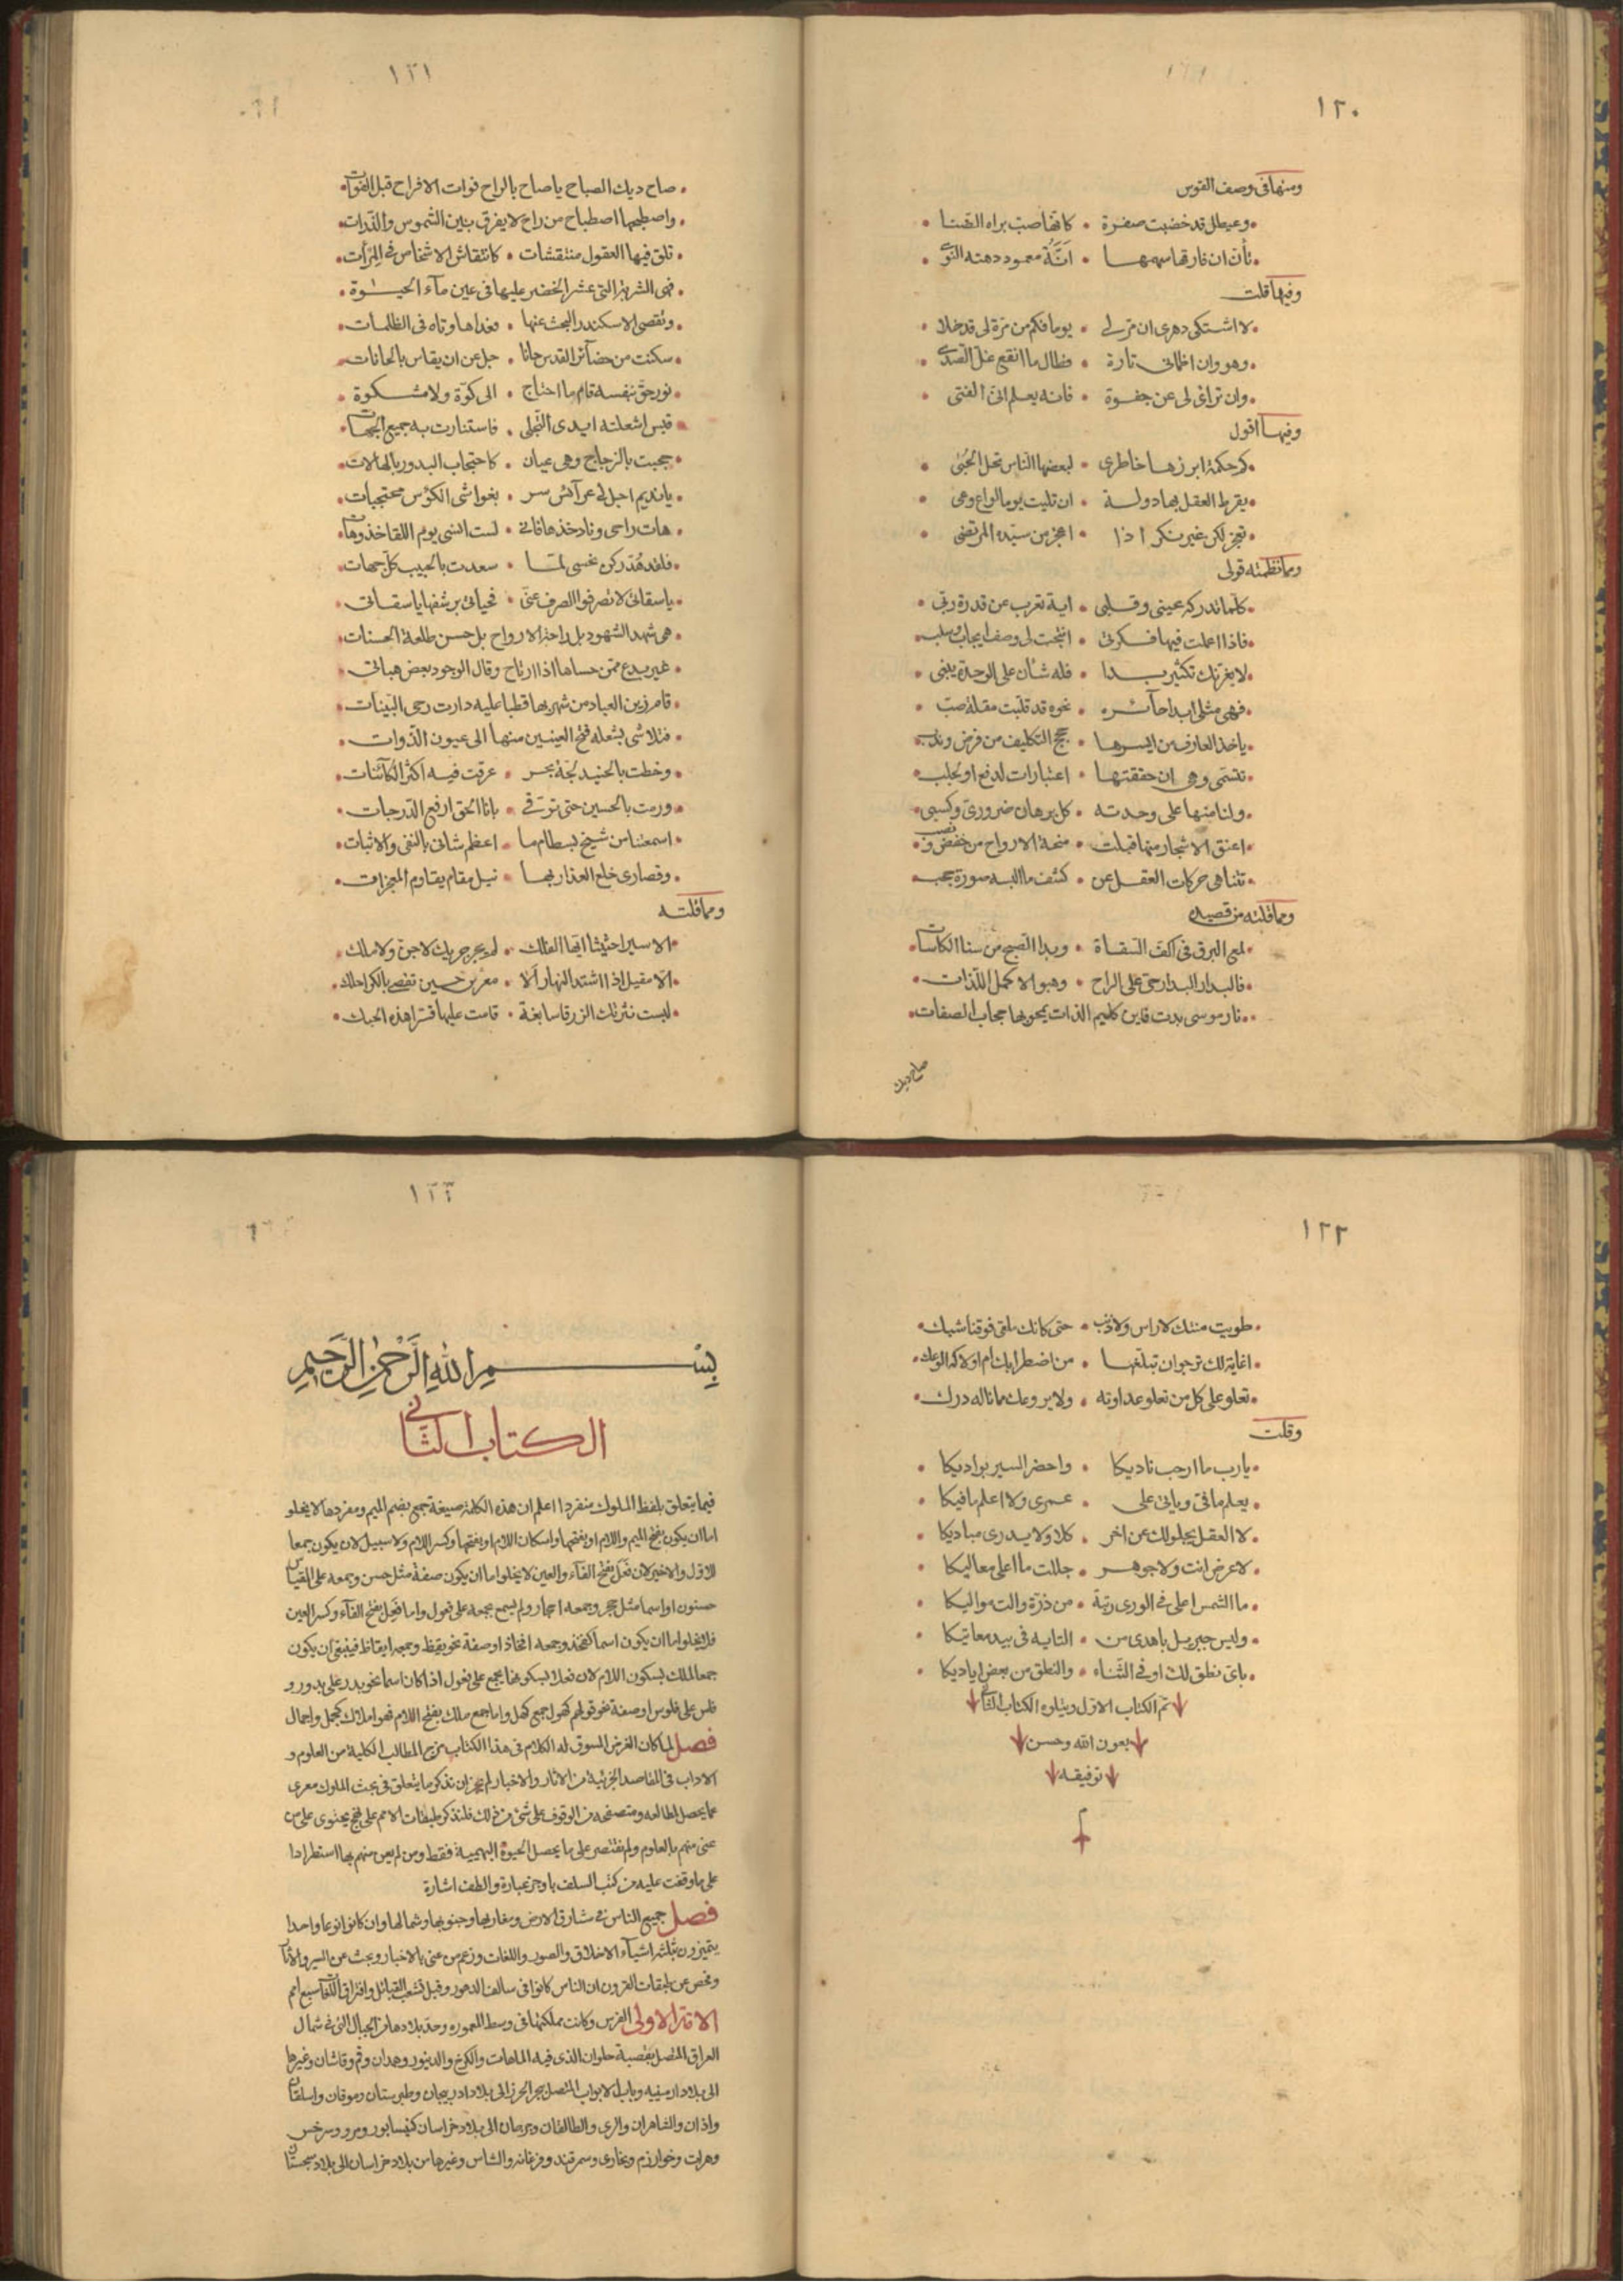 ١٢٠
ومنها في وصف القوس
وعيطل قد خضبت صفرة • كانها صب براه الضنا
نأن ان فارقها سهمها • انَّة معمود دهته النوى
وفيها قلت
لا اشتكى دهرى ان مر لي • يوما فكم من مرة لى قد حلا
وهو وان اظمانى تارة • فطال ما انقع غل الصدى
وان تراخى لى عن جفوة • فانه يعلم انى الفتى
وفيها اقول
كم حكمة ابرزها خاطرى • لبعضها الناس تحل الحبى
يقرط العقل بها دولة • ان تليت يوما لواع وعى
تعجز لكن غير نكر اذا • اعجز من سيده المرتضى
ومما نظمته قولى
كلما تدركه عينى وقلبى • اية تعرب عن قدرة ربى
فاذا اعملت فيها فكرتى • انتجت لى وصف ايجاب وسلب
لا يغرنك تكثير بدا • فله شأن على الوحدة ينبى
فهى مثلى ابدا حآئره • نحوه قد قلبت مقلة صب
ياخذ العارف من ايسرها • حجج التكليف من فرض وندب
تنتمى وهى ان حققتها • اعتبارات لدفع او لجلب
ولنا منها على وحدته • كل برهان ضرورى وكسبى
اعنق الاشجار منها قبلت • منحة الارواح من خفض ونصب
تتناهى حركات العقل عن • كشف ما البسه صورة حجب
ومما قلته من قصيده
لمع البرق فى اكف السقاة • وبدا الصبح من سنا الكاسات
فالبدار البدار حى على الراح • وهبوا لاكمل اللذات
نار موسى بدت فاين كليم الذات يمحو بها حجاب الصفات
صاح ديك
١٢١
صاح ديك الصباح يا صاح بالراح فوات الافراح قبل الفوات
واصطبحها اصطباح من راح لا يفرق بين الشموس والذرات
تلق فيها العقول منتقشات • كانتقاش الاشخاص فى المرآت
فهى الشربة التى عثر الخضر عليها فى عين مآء الحيوة
وتقصى الاسكندر البحث عنها • فعداها وتاه فى الظلمات
سكنت من حضآئر القدس حانا • جل عن ان يقاس بالحانات
نور حق بنفسه قام ما احتاج • الى كوة ولا مشكوة
قبس اشعلته ايدى التجلى • فاستنارت به جميع الجهات
حجبت بالزجاج وهى عيان • كاحتجاب البدور بالهالات
يا نديم اجل لى عرآئس سر • بغواشى الكؤس محتجبات
هات راحى وناد خذها فانى • لست انسى يوم اللقا خذ وهات
فلقد هُدّ ركن نحسى لما • سعدت بالحبيب كل جهات
يا سقاتى لا تصرفوا الصرف عنى • فحياتى برشفها يا سقاتى
هى شهد الشهود بل راحة الارواح بل حسن طلعة الحسنات
غير بدع ممن حساها اذا ارتاح وقال الوجود بعض هباتى
قام زين العباد من شربها قطبا عليه دارت رحى البينات
فتلاشى بشعله فتح العينين منها الى عيون الذوات
وخطت بالجنيد لجة بحر • غرقت فيه اكثر الكآئنات
ورمت بالحسين حتى ترقى • بانا الحق ارفع الدرجات
اسمعتنا من شيخ بسطام ما • اعظم شانى بالنفى والاثبات
وقصارى خلع العذار بها • نيل مقام يقاوم المعجزات
ومما قلته
الا سيرا حثيثا ايها الفلك • لم يجر جريك لا جن ولا ملك
الا مقيل اذا اشتد النهار الا • معرس حين تفصى بالكرا حلك
لبست نثرتك الزرقا سابغة • قامت عليها قترا هذه الحبك
١٢٢
طويت متنك لا راس ولا ذنب • حتى كانك ملقى فوقنا شبك
اغاية لك ترجو ان تبلغها • من اضطرابك ام اولا كه الوعك
تعلو على كل من تعلو عداوته • ولا يروعك مما ناله درك
وقلت
يا رب ما ارحب ناديكا • واحضر السير بواديكا
يعلم ما فى ويانى على • عمرى ولا اعلم ما فيكا
لا العقل يجلو لك عن اخر • كلا ولا يدرى مباديكا
لا عرض انت ولا جوهر • جللت ما اعلى معاليكا
ما الشمس اعلى فى الورى رتبة • من ذرة والت مواليكا
وليس جبريل باهدى من • التايه فى بيد معاتيكا
باى نطق لك اوفى الثناء • والنطق من بعض اياديكا
تم الكتاب الاول ويتلوه الكتاب الثانى
بعون الله وحسن
توفيقه
م
١٢٣
بسم الله الرحمن الرحيم
الكتاب الثانى
فيما يتعلق بلفظ الملوك منفردا اعلم ان هذه الكلمة صيغة جمع بضم الميم ومفردها لا يخلو
اما ان يكون بفتح الميم واللام او بفتحها واسكان اللام او بفتحها وكسر اللام ولا سبيل لان يكون جمعا
للاول والاخير لان فَعَل بفتح الفآء والعين لا يخلو اما ان يكون صفة مثل حسن وجمعه على القياس
حسنون او اسما مثل حجر وجمعه احجار ولم يسمع جمعه على فعول واما فَعِل بفتح الفآء وكسر العين
فلا يخلو اما ان يكون اسما كفخذ وجمعه افخاذ او صفة نحو يقظ وجمعه ايقاظ فينبغى ان يكون
جمعا لملك بسكون اللام لان فعلا بسكونها يجمع على فعول اذا كان اسما نحو بدر على بدور و
فلس على فلوس او صفة نحو قولهم كهول جمع كهل واما جمع ملك بفتح اللام فهو املاك كجمل واجمال
فصل لما كان الغرض المسوق له الكلام فى هذا الكتاب مزج المطالب الكلية من العلوم و
الاداب فى المقاصد الجزئية من الاثار والاخبار لم يجز ان نذكر ما يتعلق فى بحث الملوك معرى
عما يحصل لمطالعه ومتصفحه من الوقوف على شئ من ذلك فلنذكر طبقات الامم على نهج يحتوى على من
عنى منهم بالعلوم ولم نقتصر على ما يحصل الحيوة البهيمية فقط ومن لم يعن منهم بها استطرادا
على ما وقفت عليه من كتب السلف باوجز عبارة والطف اشارة
فصل جميع الناس فى مشارق الارض ومغاربها وجنوبها وشمالها وان كانوا نوعا واحدا
يتميزون بثلثة اشيآء الاخلاق والصور واللغات وزعم من عنى بالاخبار وبحث عن السير والاثار
وفحص عن طبقات القرون ان الناس كانوا فى سالف الدهور وقبل تشعب القبائل وافتراق اللغات سبع امم
الامة الاولى الفرس وكانت مملكتها فى وسط المعموره وحد بلادها من الجبال التى فى شمال
العراق المتصل بقصبة حلوان الذى فيه الماهات والكرج والدينور وهمدان وقم وقاشان وغيرها
الى بلاد ارمينيه وباب الابواب المتصل ببحر الخزر الى بلاد اذربيجان وطبرستان وموقان واسلقان
واذان والشابران والرى والطالقان وجرجان الى بلاد خراسان كنيسابور ومرو وسرخس
وهراب وخوارزم وبخارى وسمرقند وفرغانه والشاس وغيرها من بلاد خراسان الى بلاد سجستان